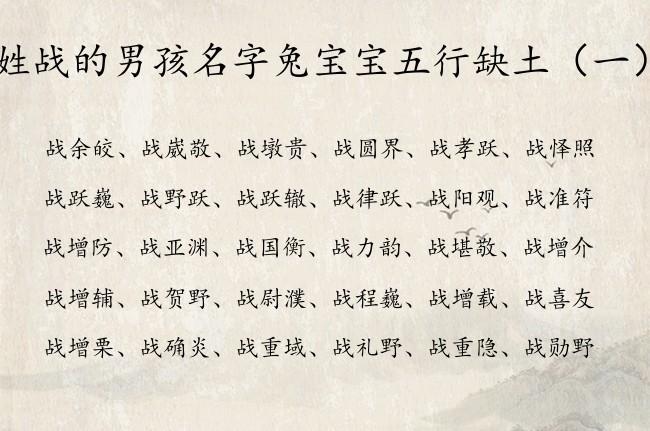 姓战的男孩名字兔宝宝五行缺土（一）
战余皎、战崴敬、战墩贵、战圆界、战孝跃、战怿照
战跃巍、战野跃、战跃辙、战律跃、战阳观、战准符
战增防、战亚渊、战国衡、战力韵、战堪敬、战增介
战增辅、战贺野、战尉濮、战程巍、战增载、战喜友
战增栗、战确炎、战重域、战礼野、战重隐、战勋野